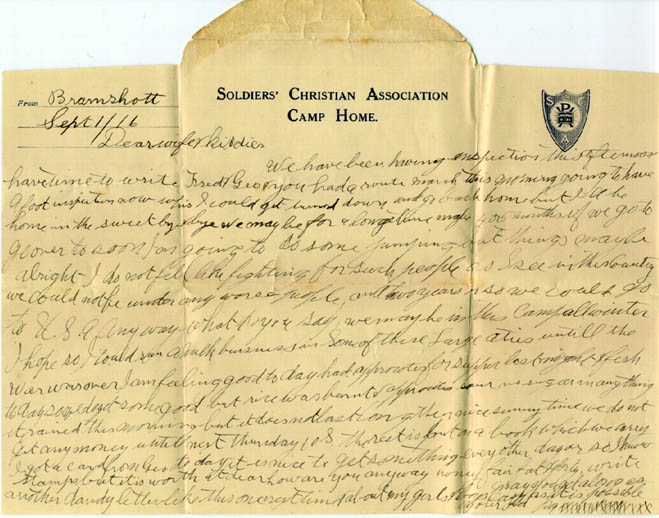 SOLDIERS' CHRISTIAN ASSOCIATION
CAMP HOME.
From Bramshott
Sept 1/16
S C A
Dear wife & kiddies
We have been having inspection this afternoon
have time to write Fred & Geo & you had a route march this morning going to have
a foot inspection now I could get turned down and go back home but I'll be
home in the sweet by & bye we may be for a long time 6 months if we go to
go over to soon I'm going to do some jumping but things maybe
alright I do not feel like fighting for such people as I see in this Country
we could not be under any worse people, two years so we could go
to U.S.A. any way what do you say, we may be in this Camp all winter
I hope so, I could run a milk business in some of these large cities untill the
War was over I am feeling good to day had for supper last night & fish
to day some good but rice was burnt sour no sugar in any thing
it rained this morning but it does not last long then nice sunny time we do not
get any money untill next Thursday 10 S the rest is put on a book which we carry
I got a card from Geo to day it is nice to get something every other day or so I know
Stamps but it is worth it dear how are you anyway honey write
another dandy letter like this once again about my girls
possible
your old